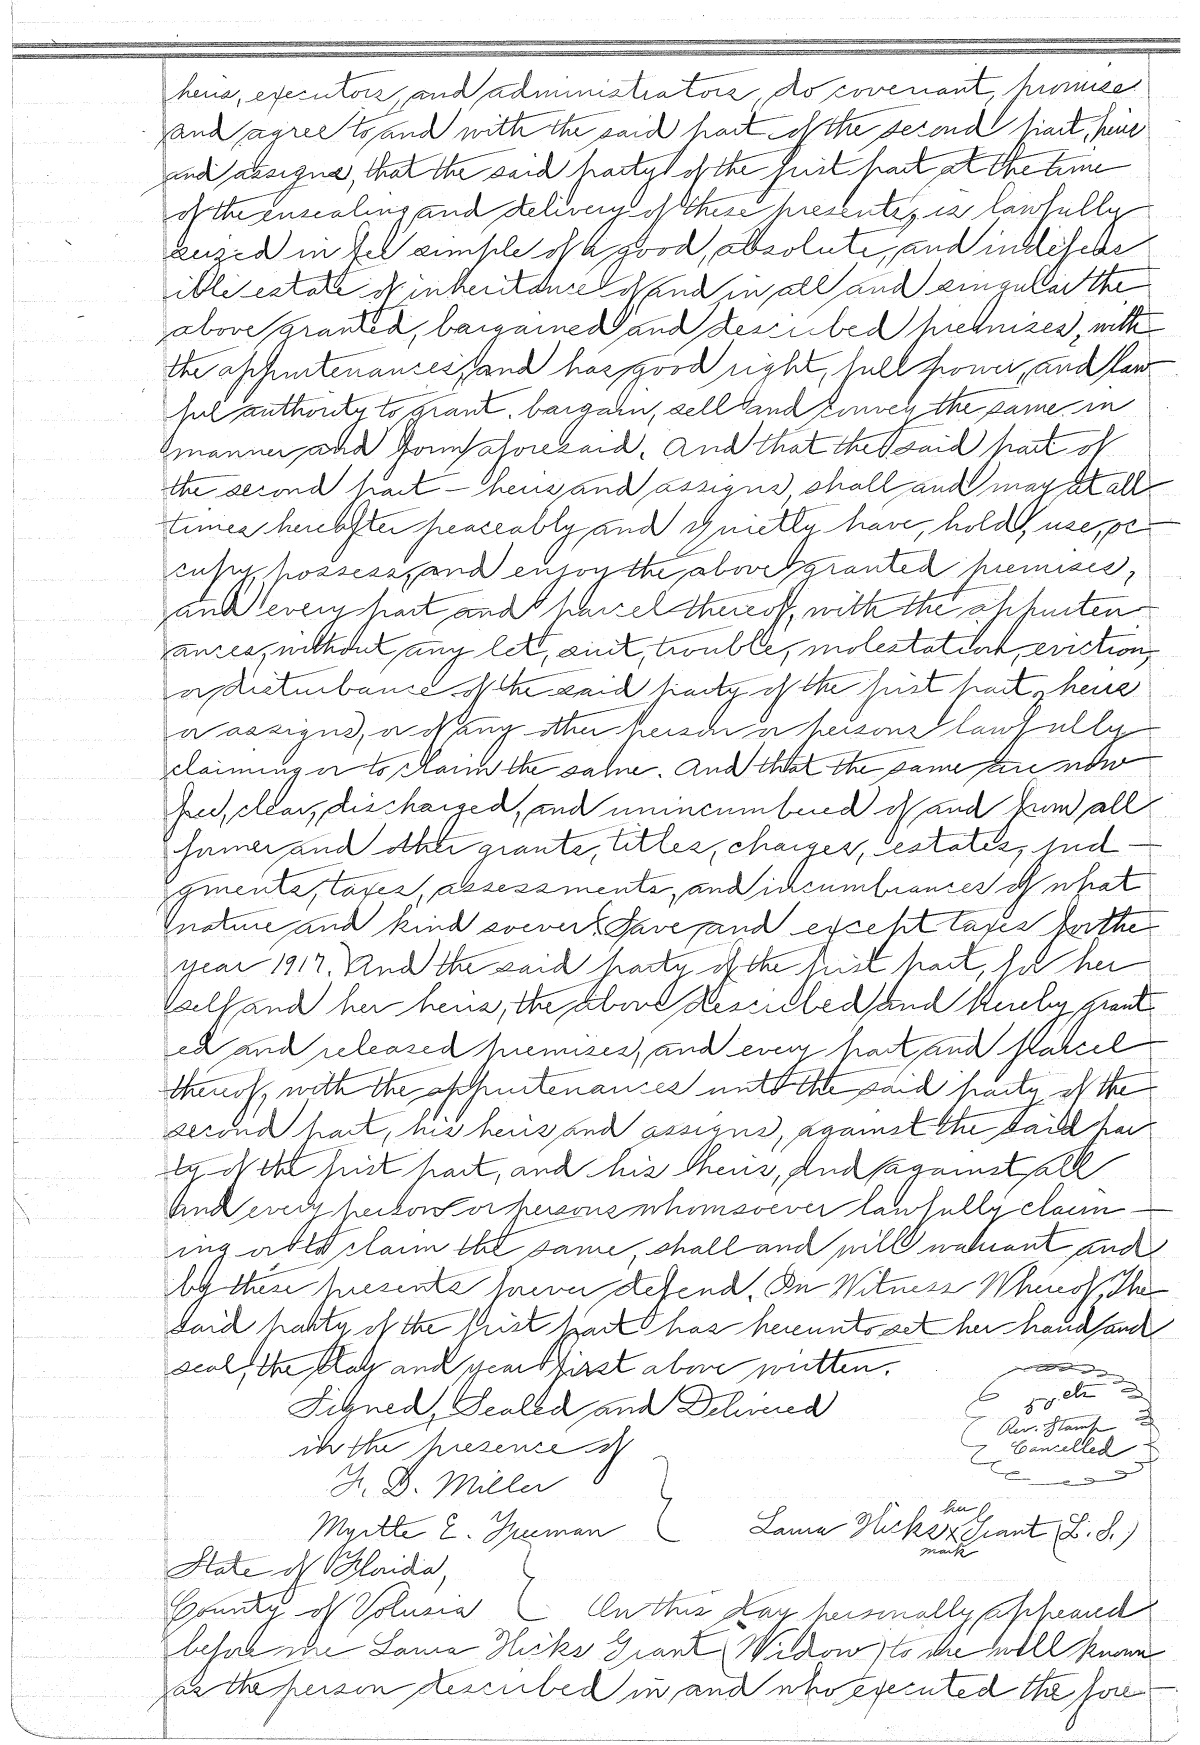 heirs, executors, and administrators, do covenant, promise
and agree to and with the said part of the second part, heirs
and assigns, that the said party of the first part at the time
of the ensealing and delivery of these presents, is lawfully
seized in fee simple of a good, absolute, and indefeas
ible estate of inheritance of and in all and singular the
above granted, bargained and described premises, with
the appurtenances, and has good right, full power, and law
ful authority to grant, bargain, sell and convey the same in
manner and form aforesaid. And that the said part of
the second part - heirs and assigns, shall and may at all
times hereafter peaceably and quietly have, hold, use, oc-
cupy, possess, and enjoy the above granted premises,
and every part and parcel thereof, with the appurten
ances, without any let, suit, trouble, molestation, eviction,
or disturbance of the said party of the first part, heirs
or assigns, or of any other person or persons lawfully
claiming or to claim the same. And that the same are now
free, clear, discharged, and unincumbered of and from all
former and other grants, titles, charges, estates, jud -
gments, taxes, assessments, and incumbrances of what
nature and kind soever. Save and except taxes for the
year 1917. And the said party of the first part, for her
self and her heirs, the above described and hereby grant
ed and released premises, and every part and parcel
thereof, with the appurtenances unto the said party of the
second part, his heirs and assigns, against the said par
ty of the first part, and his heirs, and against all
and every person or persons whomsoever lawfully claim -
ing or to claim the same, shall and will warrant and
by these presents forever defend. In Witness Whereof, The
said party of the first part has hereunto set her hand and
seal, the day and year first above written.
Signed, Sealed and Delivered
in the presence of
cts
Rev. Stamp
Cancelled
F. D. Miller
Myrtle E. Freeman
her
Laura Hicks x Grant (L. S.)
mark
State of Florida,
County of Volusia
On this day personally appeared
before me Laura Hicks Grant (Widow) to me well known
as the person described in and who executed the fore -